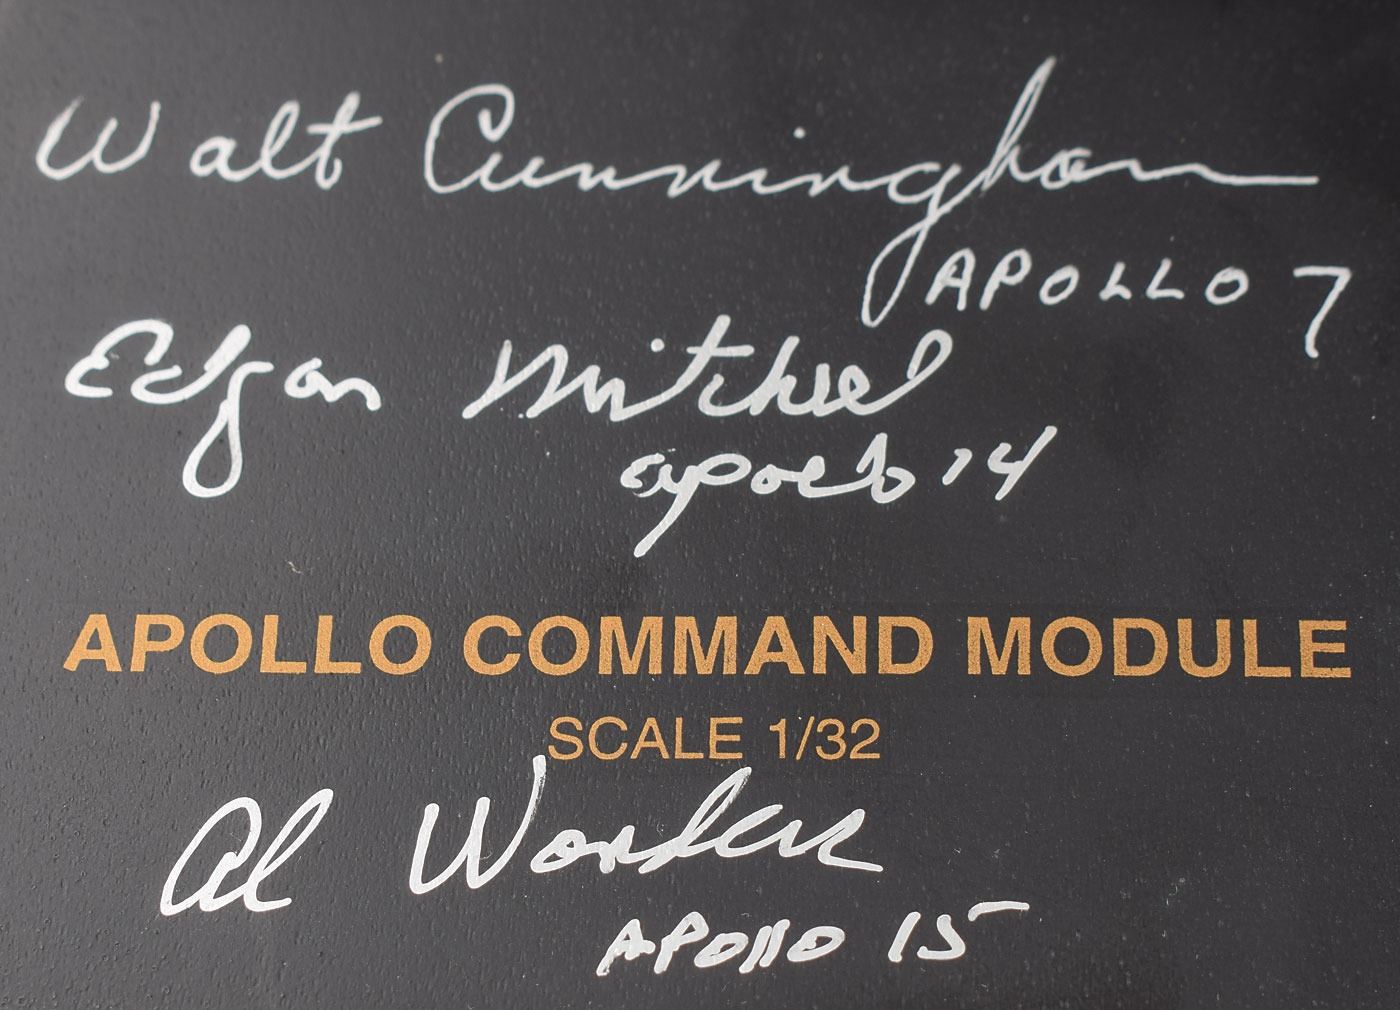 Walt Cunningham
APOLLO 7
Edgar Mitchell
apollo 14
APOLLO COMMAND MODULE
SCALE 1/32
Al Worden
APOllO 15